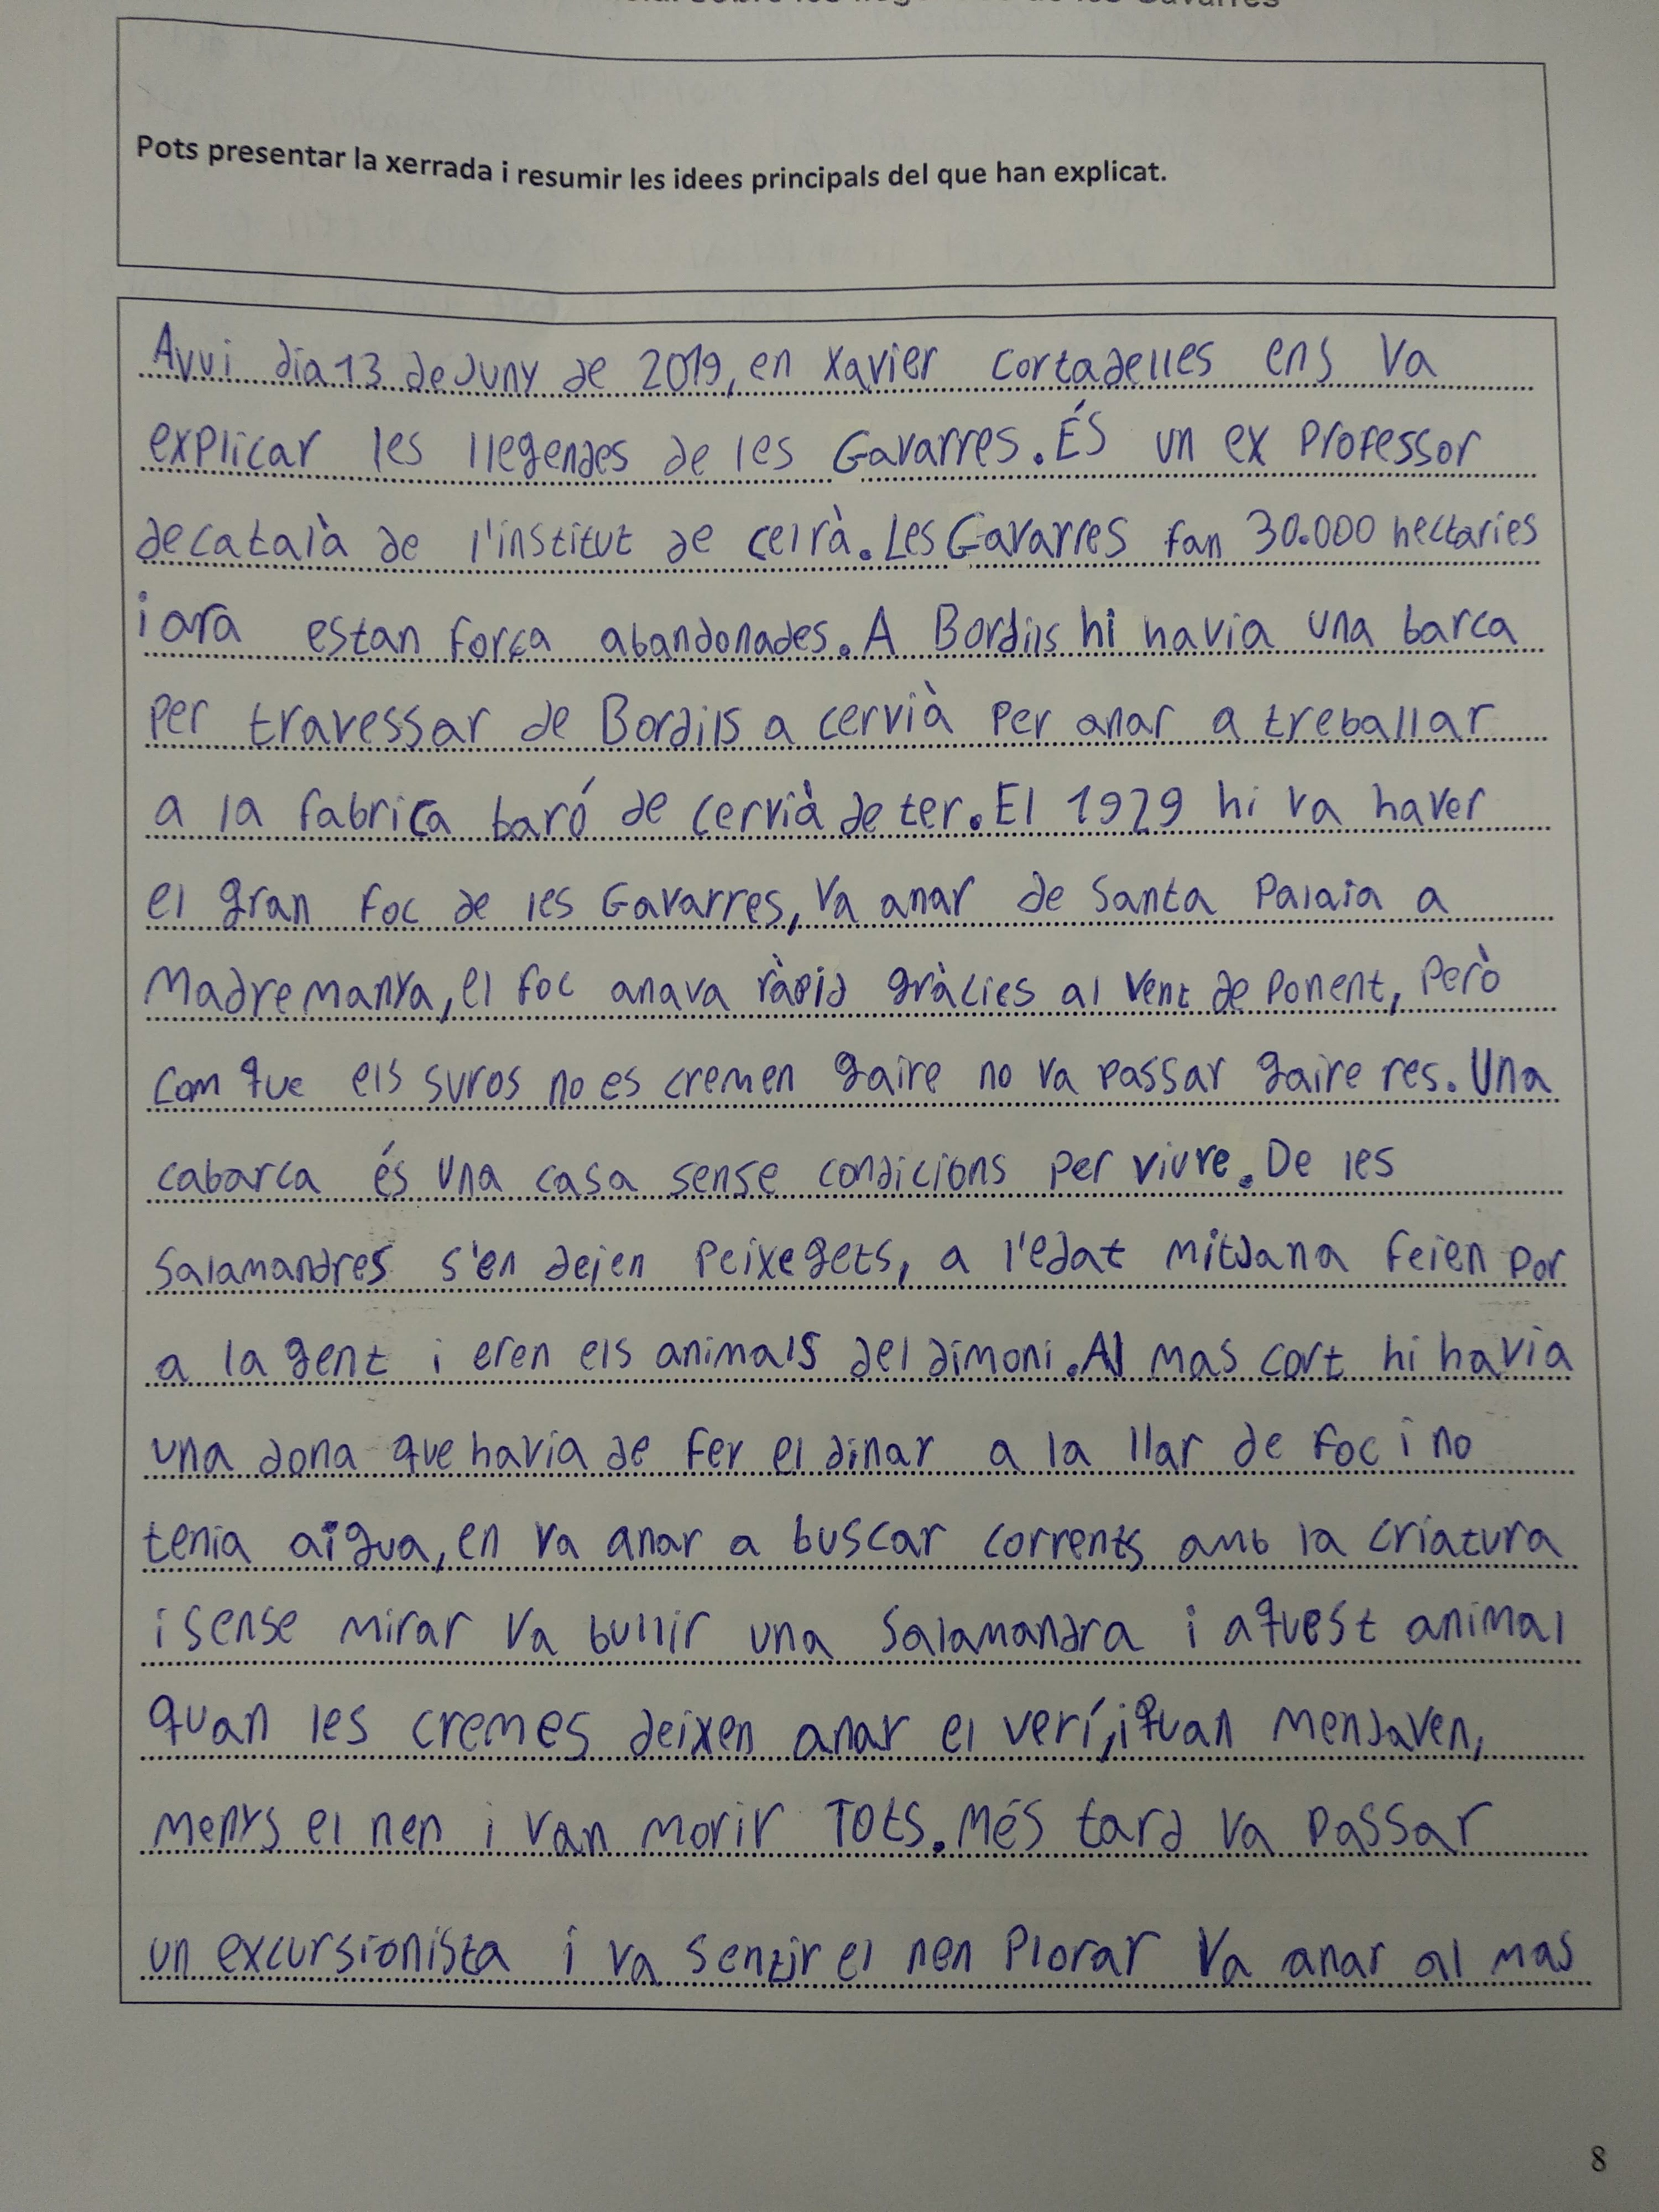 sobre les de les Gavarres
Pots presentar la xerrada i resumir les idees principals del que han explicat.
Avui dia 13 de Juny de 2019, en Xavier Cortadelles ens va
explicar les llegendes de les Gavarres. És un ex professor
de català de l'institut de celrà. Les Gavarres fan 30.000 hectaries
i ara estan força abandonades. A Bordils hi havia una barca
per travessar de Bordils a cervià per anar a treballar
a la fabrica baró de cervià de ter. El 1929 hi va haver
el gran foc de les Gavarres, va anar de Santa Palaia a
Madremanya, el foc anava ràpid gràcies al vent de ponent, però
com que els suros no es cremen gaire no va passar gaire res. Una
cabarca és una casa sense condicions per viure. De les
salamandres s'en deien peixegets, a l'edat mitjana feien por
a la gent i eren els animals del dimoni. Al mas cort hi havia
una dona que havia de fer el dinar a la llar de foc i no
tenia aigua, en va anar a buscar corrents amb la criatura
i sense mirar va bullir una salamandra i aquest animal
quan les cremes deixen anar el verí, i quan menjaven,
menys el nen i van morir Tots. Més tard va passar
un excursionista i va sentir el nen plorar va anar al mas
8